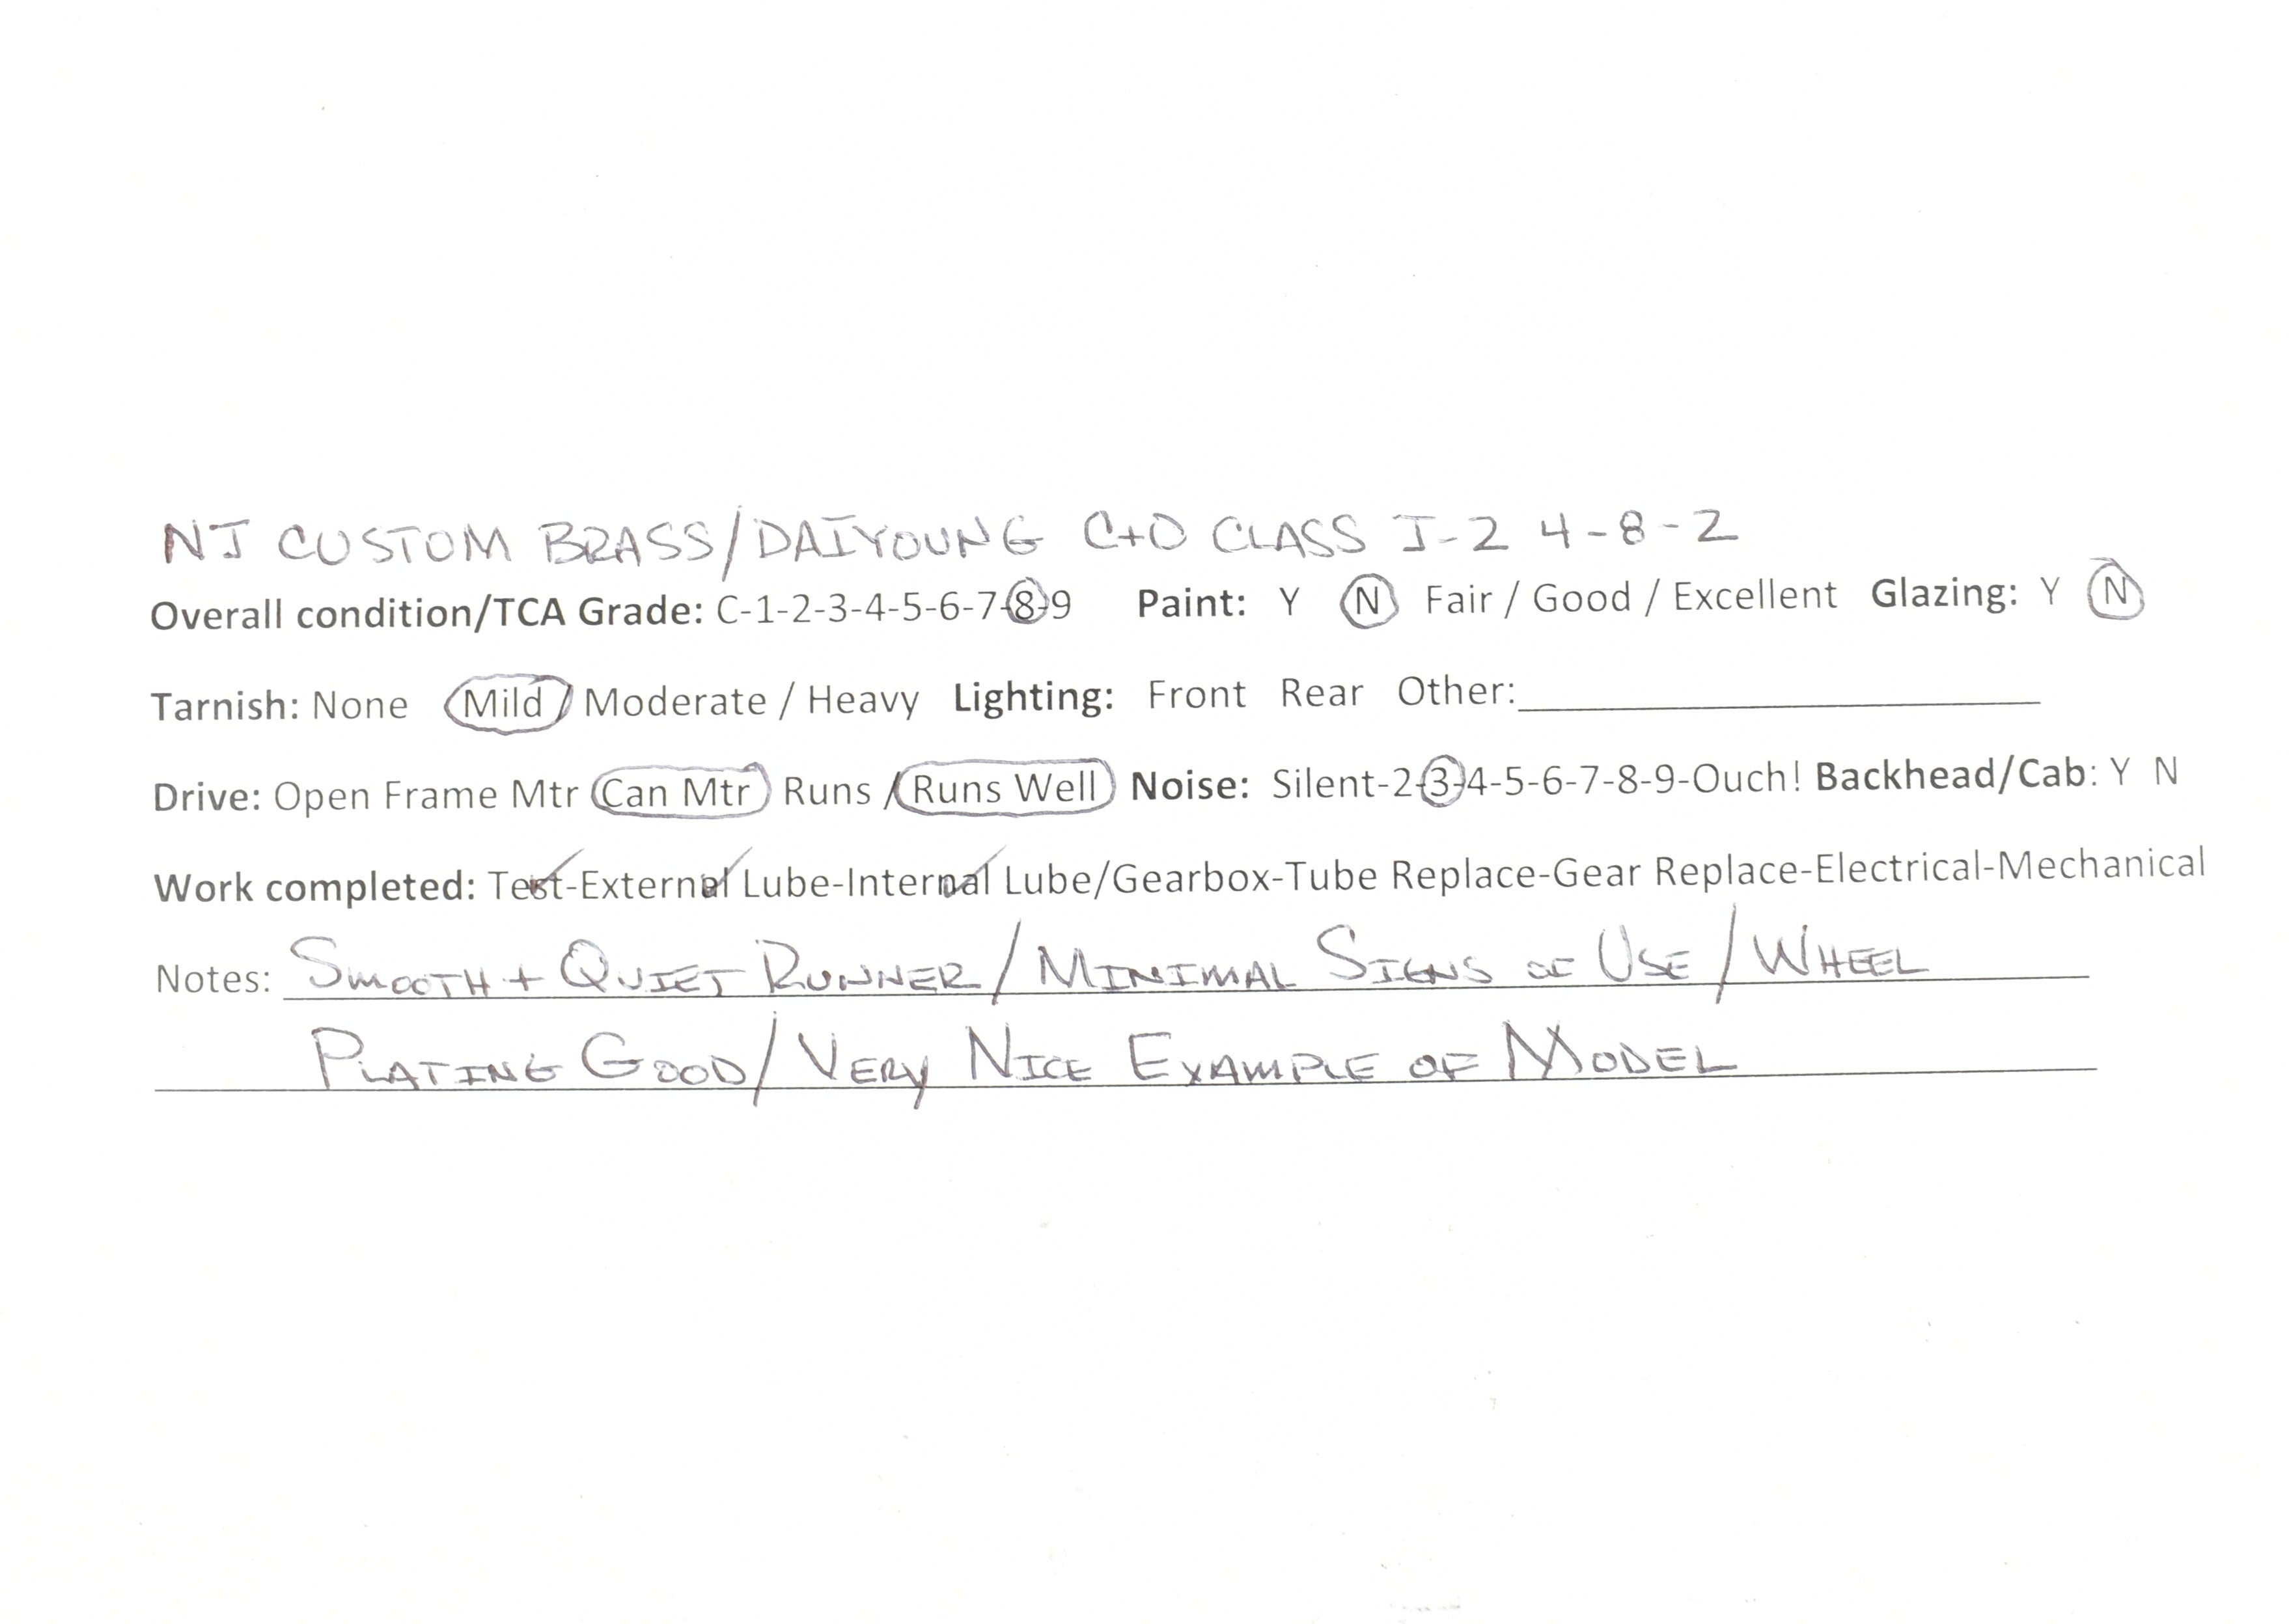 NJ CUSTOM BRASS/DAIYOUNG C+O CLASS J-2 4-8-2
Overall condition/TCA Grade: C-1-2-3-4-5-6-7-8-9 Paint: Y N Fair / Good / Excellent Glazing: Y N
Tarnish: None Mild / Moderate / Heavy Lighting: Front Rear Other:
Drive: Open Frame Mtr Can Mtr Runs / Runs Well Noise: Silent-2-3-4-5-6-7-8-9-Ouch! Backhead/Cab: Y N
Work completed: Test-External Lube-Internal Lube/Gearbox-Tube Replace-Gear Replace-Electrical-Mechanical
Notes: SMOOTH + QUIET RUNNER / MINIMAL SIGNS OF USE / WHEEL
PLATING GOOD / VERY NICE EXAMPLE OF MODEL